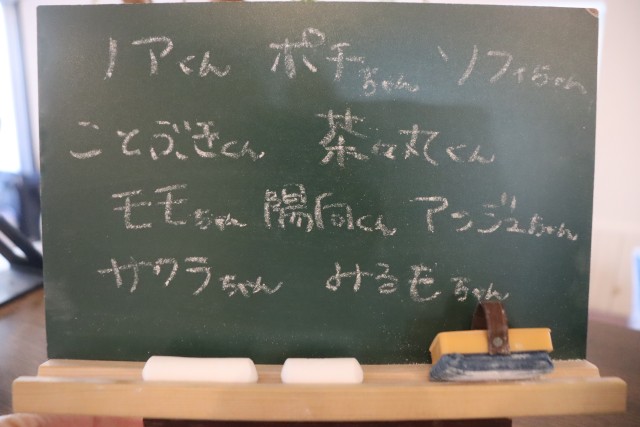 ノアくん ポチちゃん ソフィちゃん
ことぶきくん 茶々丸くん
モモちゃん 陽向くん アンジュちゃん
サクラちゃん みるもちゃん